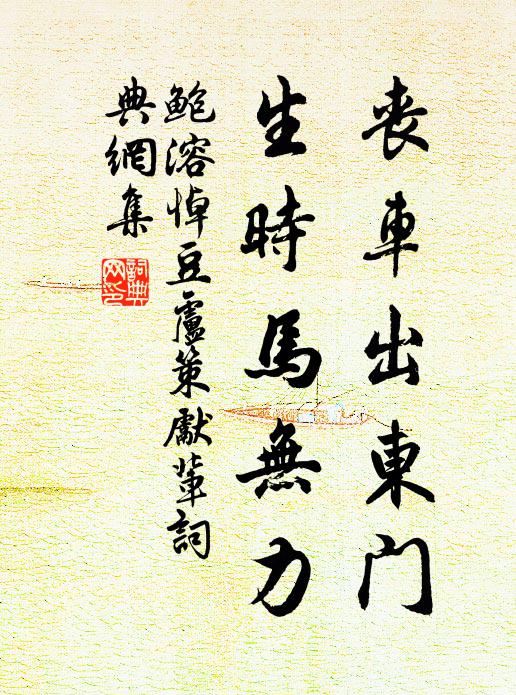 喪車出東門
生時馬無力
鮑溶悼豆盧策獻輩詞
典網集
詞典
网印